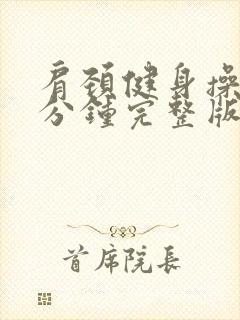 肩颈健身操
分鍾完整版
首席院長